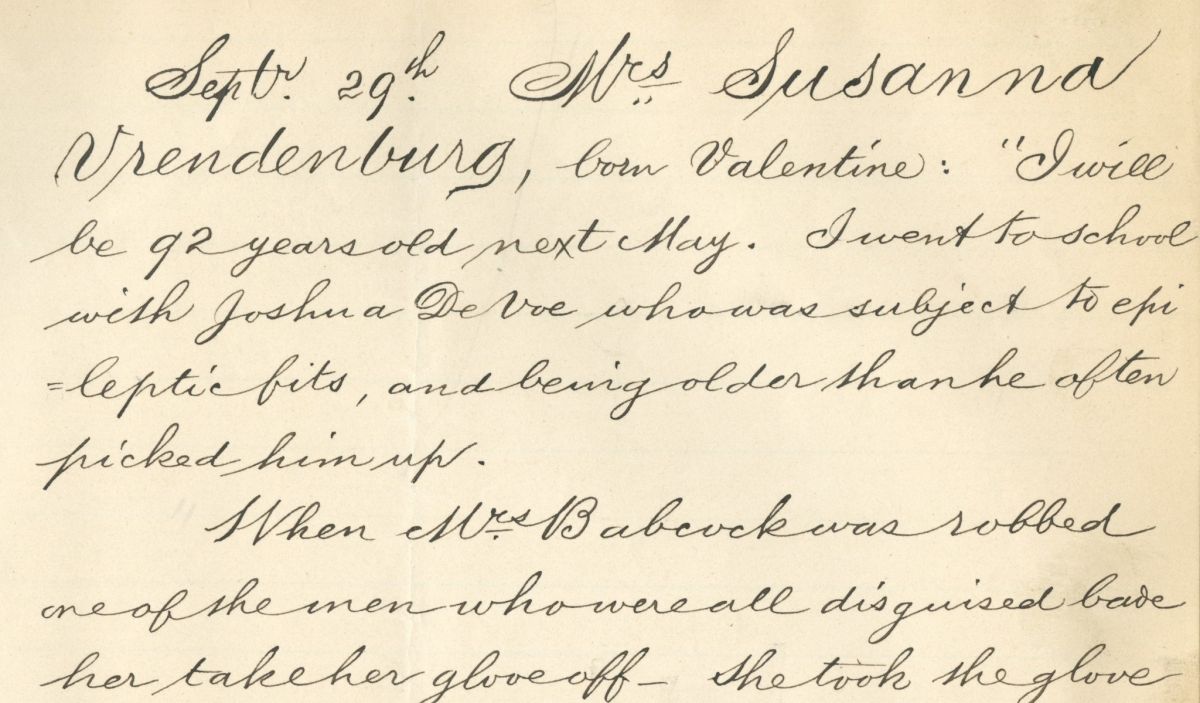 Septr. 29th. Mrs Susanna
Vrendenburg, born Valentine: "I will
be 92 years old next May. I went to school
with Joshua DeVoe who was subject to epi
=leptic fits, and being older than he often
picked him up.
When Mrs. Babcock was robbed
one of the men who were all disguised bade
her take her glove off — she took the glove